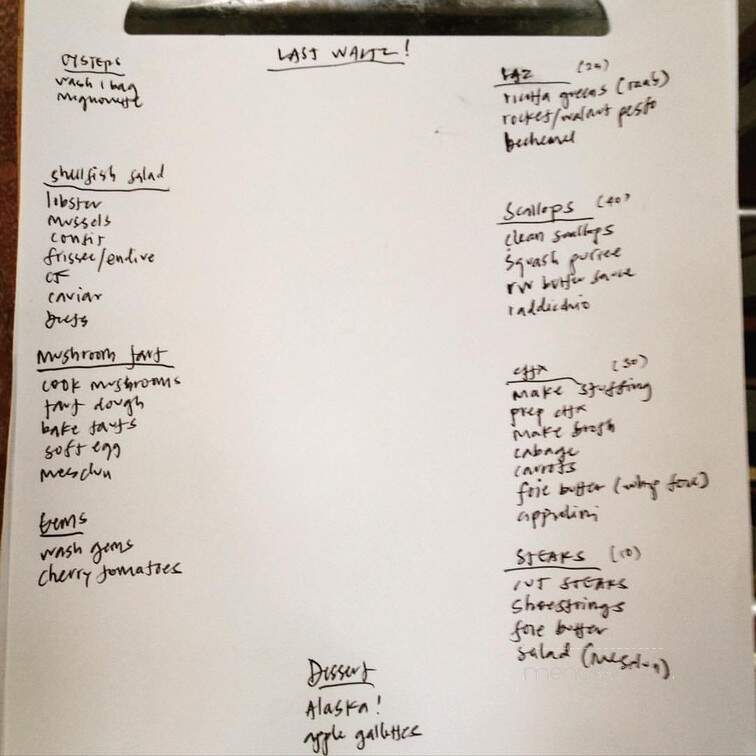 LAST WALTZ!
OYSTERS
wash 1 bag
mignonette
shellfish salad
lobster
mussels
confit
frissee/endive
CF
caviar
Mushroom tart
cook mushrooms
tart dough
bake tarts
soft egg
mesclun
Gems
wash gems
cherry tomatoes
LAZ
ricotta greens (raab)
rocket/walnut pesto
bechemel
Scallops (40)
clean scallops
squash puree
rw butter sauce
raddicchio
(30)
make stuffing
prep
make broth
cabage
carrots
foie butter (whip foie)
STEAKS (10)
CUT STEAKS
shoestrings
foie butter
salad (mesclun)
Dessert
Alaska!
apple gallettes